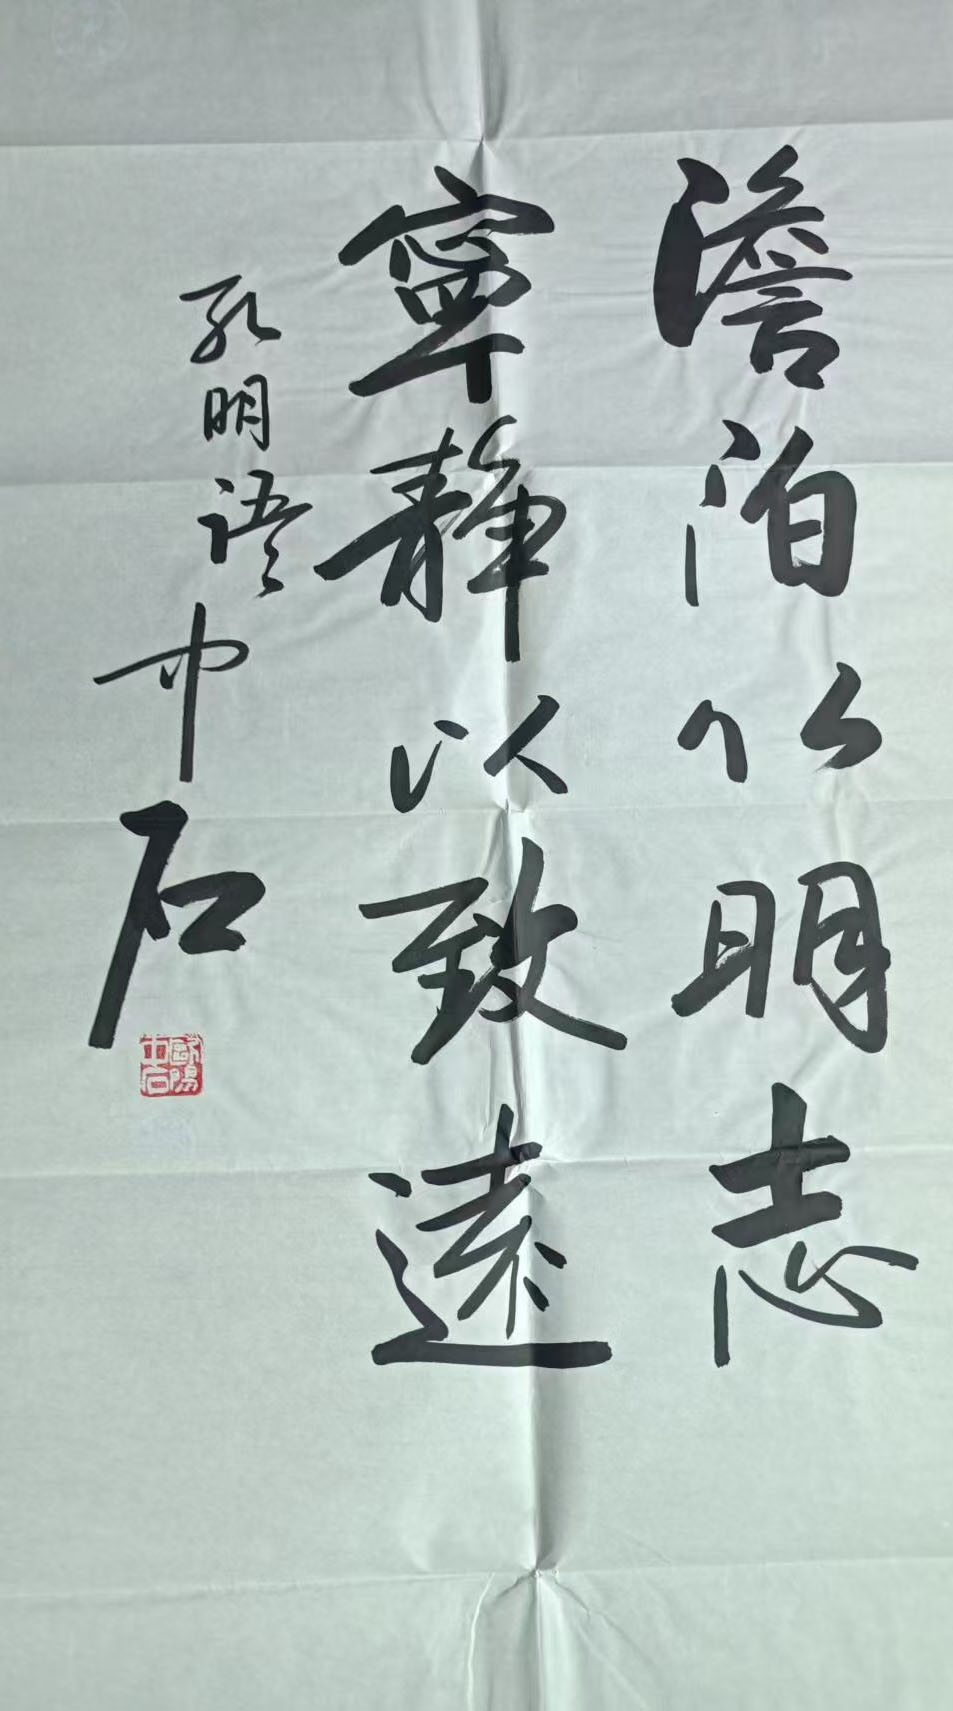 澹泊以明志
寧静以致遠
孔明语 中石
歐陽中石